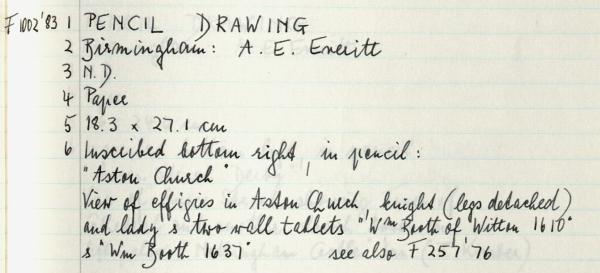 F1002'83 1 PENCIL DRAWING
2 Birmingham: A. E. Everitt
3 N.D.
4 Paper
5 18.3 x 27.1 cm
6 Inscribed bottom right, in pencil:
"Aston Church"
View of effigies in Aston Church, knight (legs detached)
and lady & two wall tablets "Wm Booth of Witton 1610"
& "Wm Booth 1637" see also F257'76